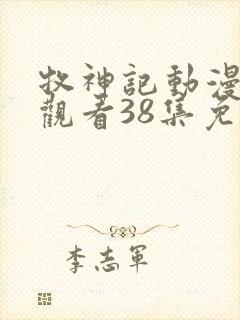 牧神記動漫
觀看38集免
李志軍